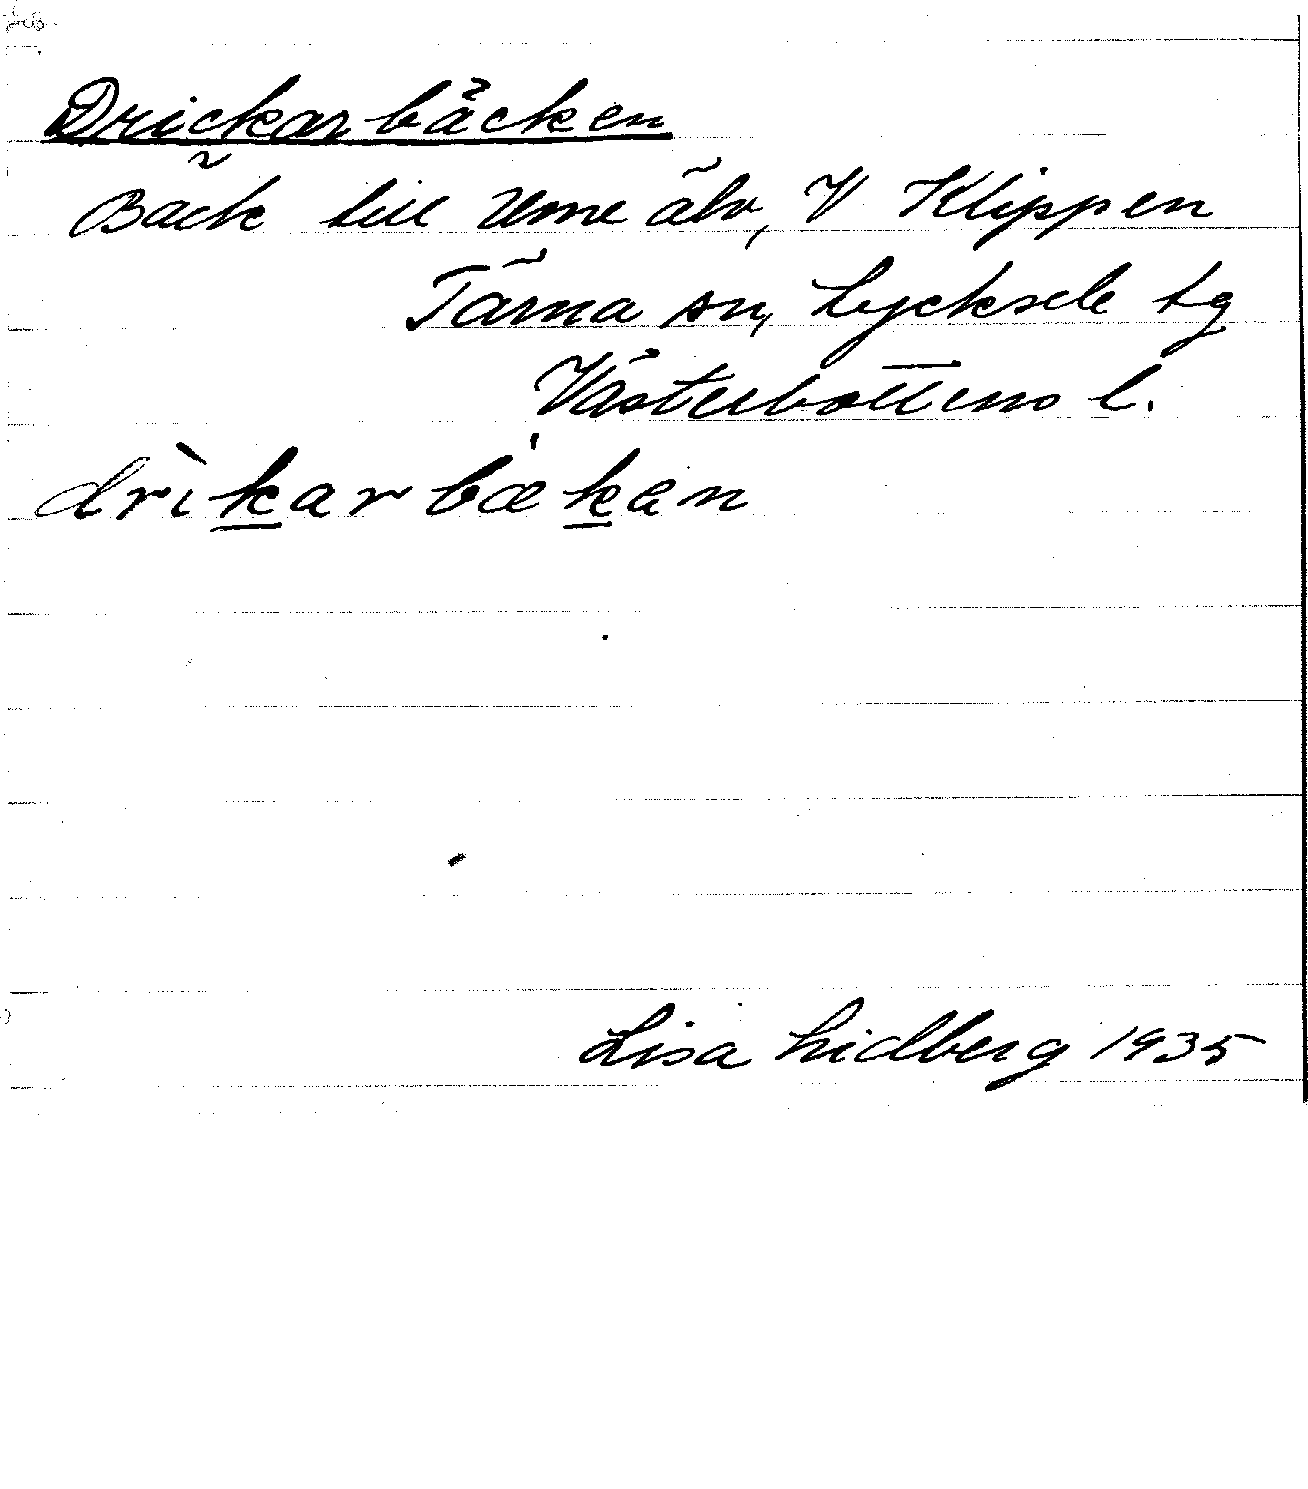 Drickarbäcken
Bäck till Ume älv, V Klippen
Tärna sn, Lycksele tg
Västerbottens l.
drìkarbækan
Lisa Lidberg 1935